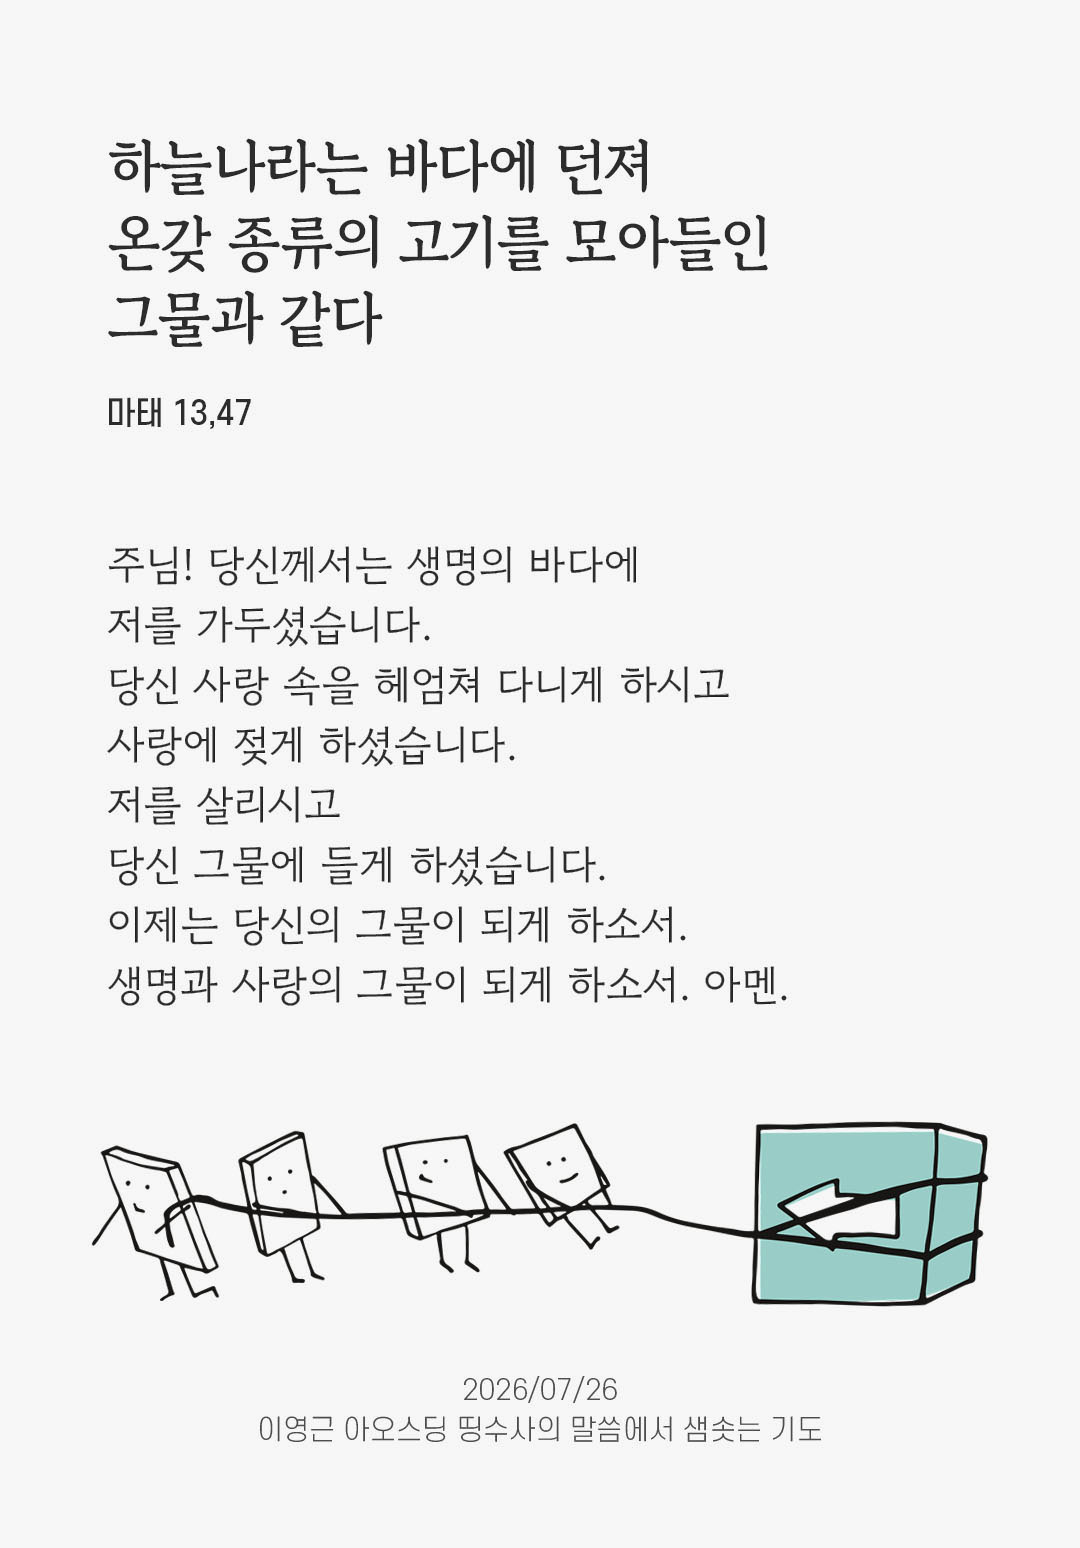 하늘나라는 바다에 던져
온갖 종류의 고기를 모아들인
그물과 같다
마태 13,47
주님! 당신께서는 생명의 바다에
저를 가두셨습니다.
당신 사랑 속을 헤엄쳐 다니게 하시고
사랑에 젖게 하셨습니다.
저를 살리시고
당신 그물에 들게 하셨습니다.
이제는 당신의 그물이 되게 하소서.
생명과 사랑의 그물이 되게 하소서. 아멘.
2026/07/26
이영근 아오스딩 띵수사의 말씀에서 샘솟는 기도